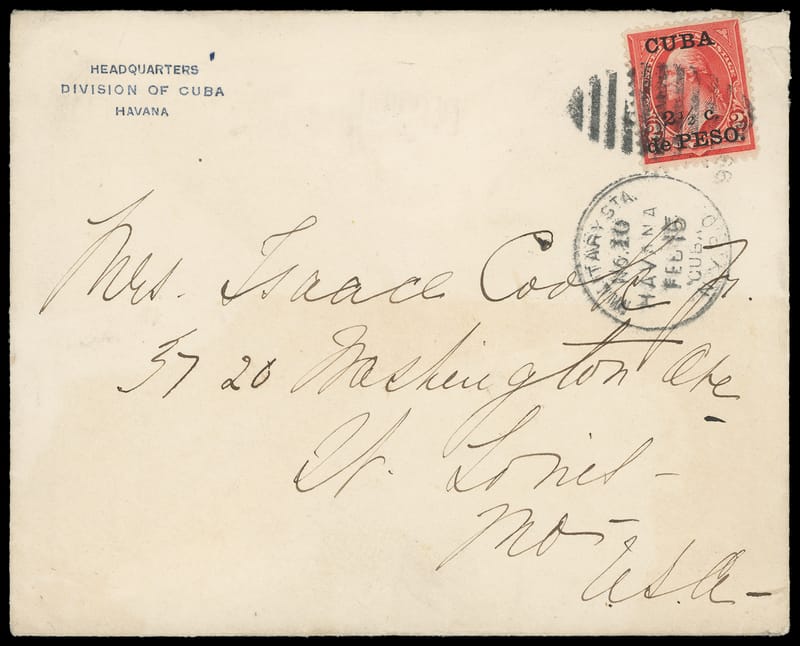 HEADQUARTERS
DIVISION OF CUBA
HAVANA
CUBA
2½ c.
de PESO.
2 2
MILITARY STA.
No. 10
HAVANA
FEB 15
CUBA
Mrs. Isaac Cook Jr.
5720 Washington Ave
St. Louis -
Mo -
U.S.A -